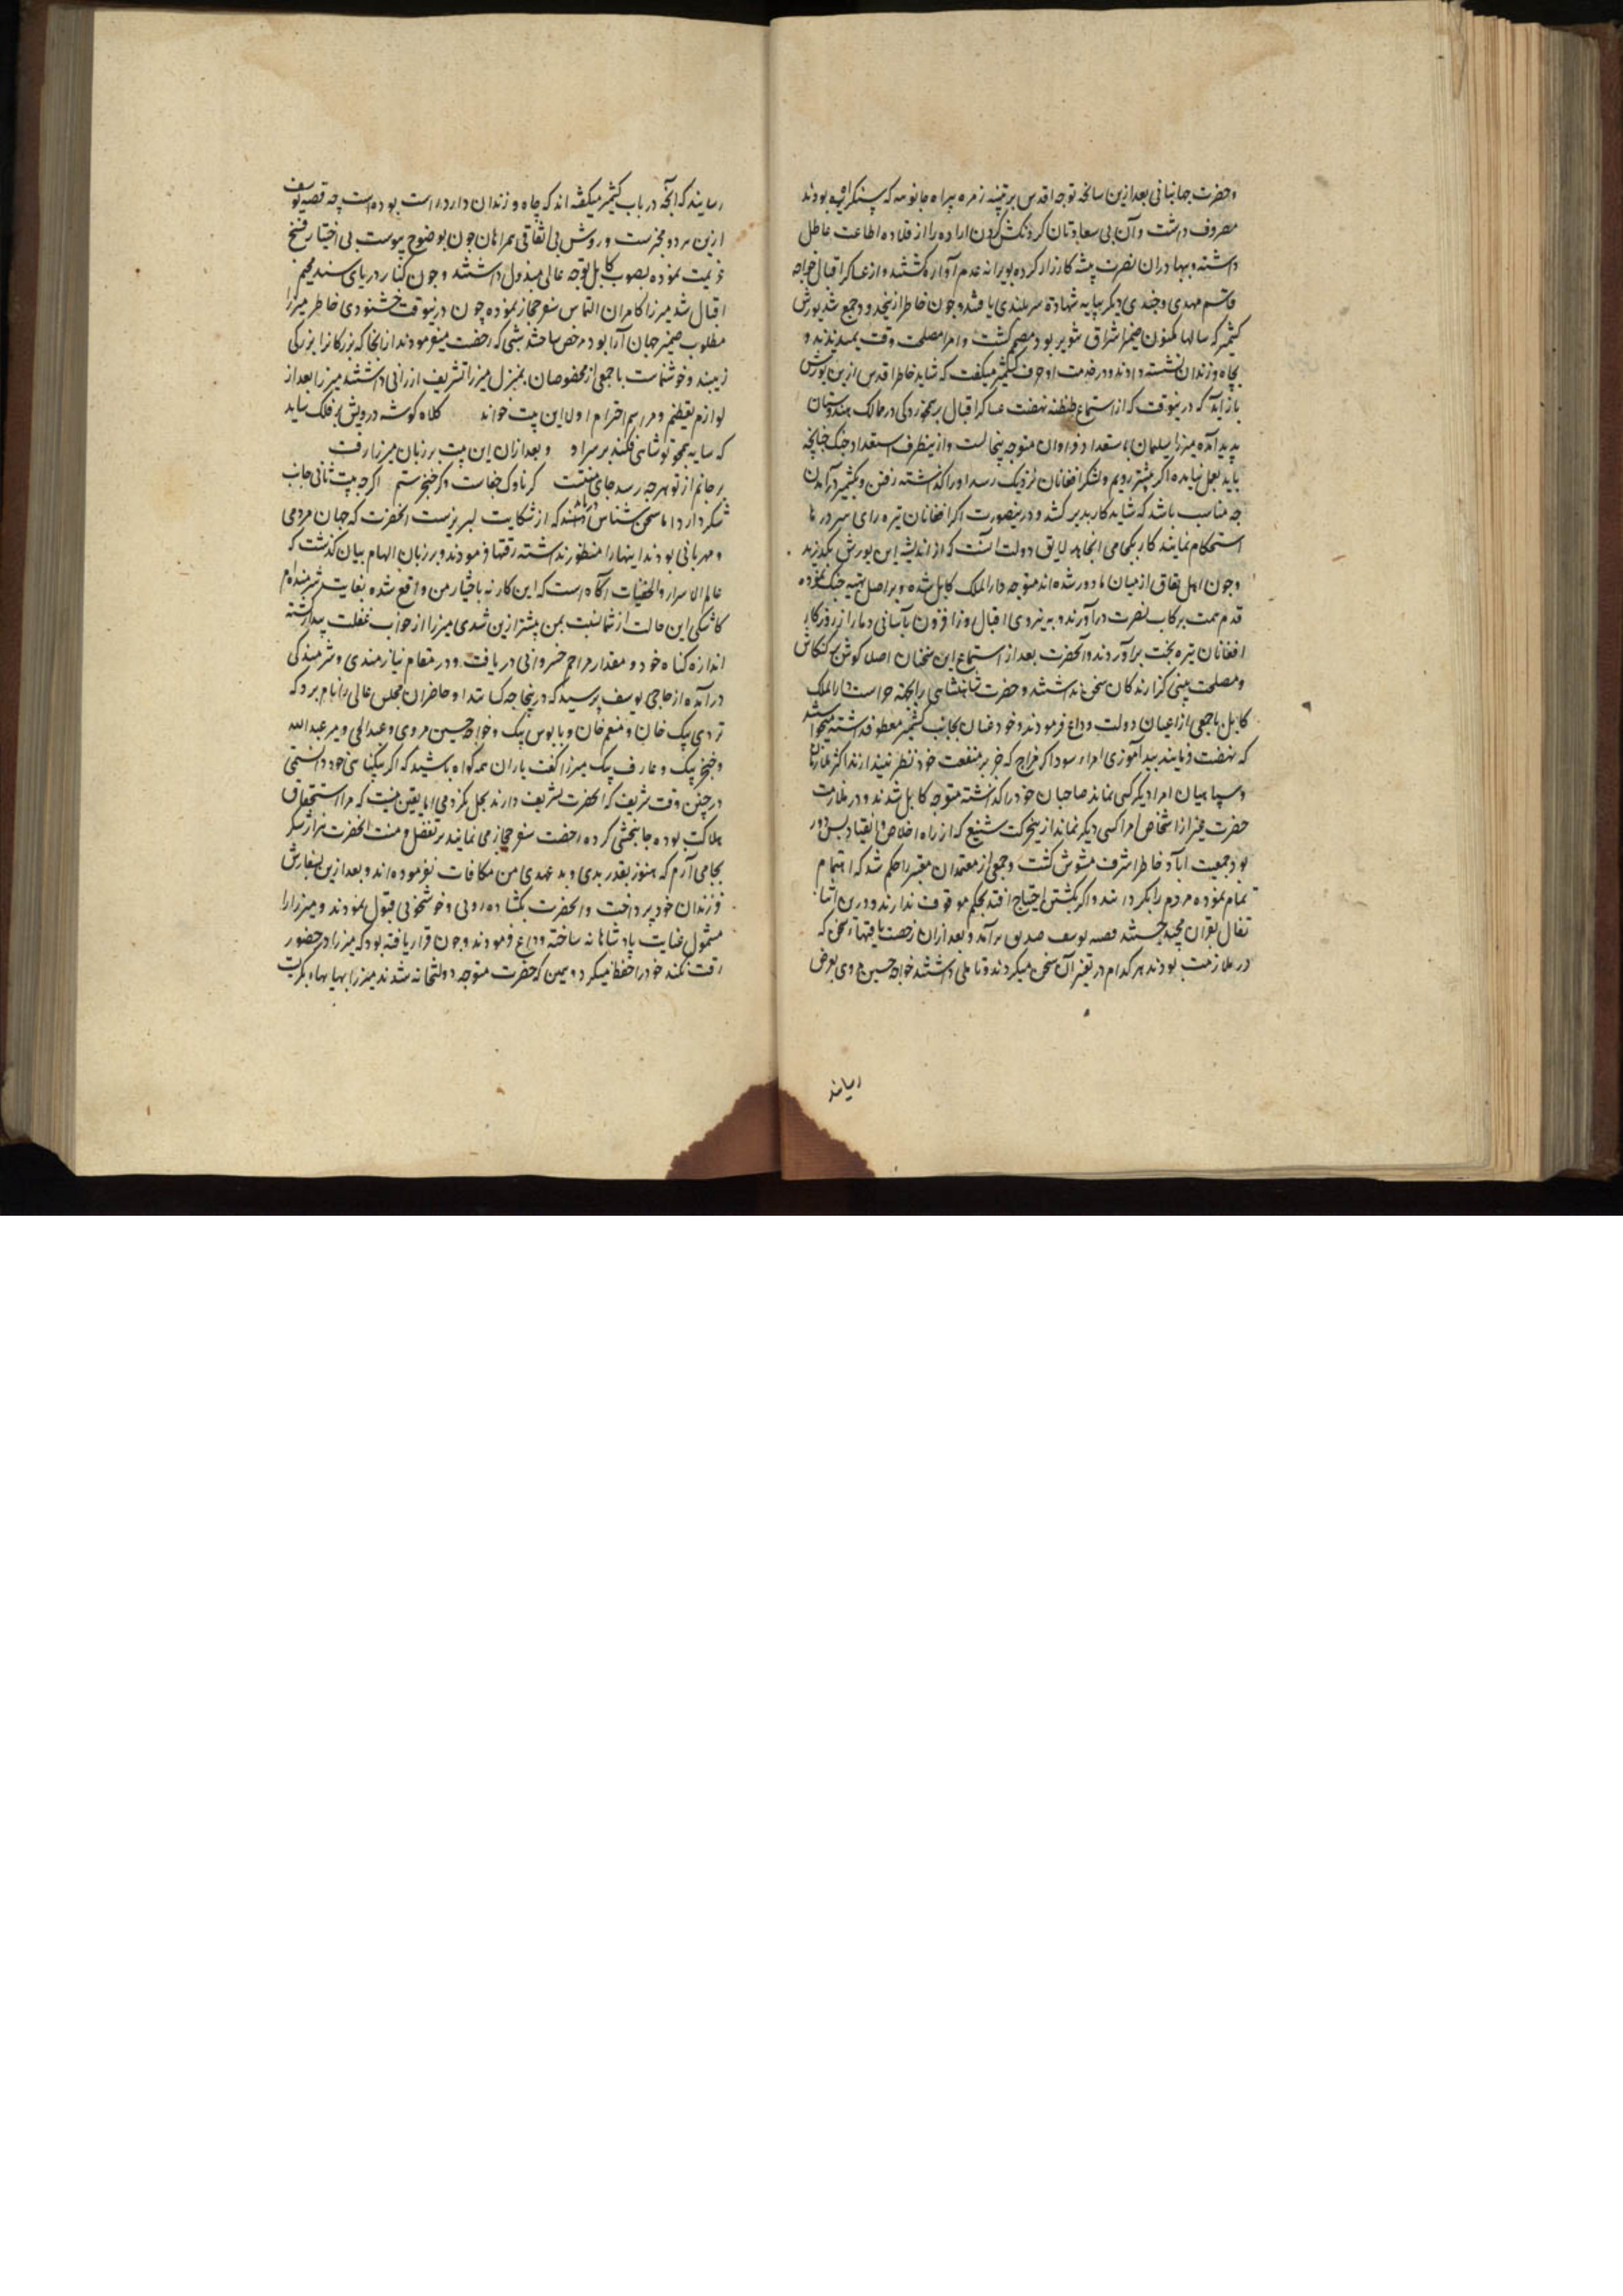 وحضرت جهانبانی بعد ازین سانحه توجه اقدس بر تنبیه زمره پیراه جانوسه که بودند
مصروف داشت وآن بی سعادتان کردنکش کردن اراده را از قلاده اطاعت عاطل
داشته و بهادران نصرت پیشه کارزار کرده بویرانه عدم آواره کشتند و از عساکر اقبال خواجه
قاسم مهدی و چندی دیکر بپایه شهادة سربلندی یافتند و چون خاطر ازینحدود جمع شد یورش
کشمیر که سالها مکنون ضمیر اشراق تنویر بود مصمم کشت و امرا مصلحت وقت نمیدیدند و
بچاه و زندان نسبت داده در مذمت او حرف میکفت که شاید خاطر اقدس ازین یورش
باز آید که درینوقت که از استماع طنطنه نهضت عساکر اقبال برهمزدکی در ممالک هندوستان
پدید آمده میرزا سلیمان با استعداد فراوان متوجه پنجاست و ازینطرف استعداد جنک چنانچه
باید بعمل نیامده اکر پیشتر رویم و لشکر افغانان نزدیک رسد او را کذاشته رفتن و بکشمیر درآمدن
چه مناسب باشد که شاید کار بدیر کشد و درینصورت اکر افغانان تیره رای سر دره ها
استحکام نمایند کار بکجا می انجامد لایق دولت آنست که از اندیشه این یورش بکذرند
و چون اهل نفاق از میان ما دور شده اند متوجه دارالملک کابل شده و بر اصل تهیه جنک نموده
قدم همت برکاب نصرت درآورند و به نیروی اقبال روز افزون بآسانی دمار از روزکار
افغانان تیره بخت برآورند و آنحضرت بعد از استماع این سخنان اصلا کوش بر کنکاش
و مصلحت بینی کزارندکان سخن نداشتند و حضرت شاهنشاهی را بجهته حراست دارالملک
کابل با جمعی از اعیان دولت وداع فرمودند و خود عنان بجانب کشمیر معطوف داشته میخواستند
که نهضت فرمایند ببدآموزی امراء سوداکر مزاج که جز بر منفعت خود نظر نیندازند اکثر ملازمان
و سپاهیان امرا دیکر کسی نماند صاحبان خود را کذاشته متوجه کابل شدند و در ملازمت
حضرت غیر از اشخاص امرا کسی دیکر نماند ازینحرکت شنیع که از راه اخلاص و انقیاد بس دور
بود جمعیت آباد خاطر اشرف مشوش کشت و جمعی از معتمدان معتبر را حکم شد که اهتمام
تمام نموده مردم را بکردانند و اکر بکشتن احتیاج افتد بحکم موقوف ندارند و درین اثنا
تفال بقرآن مجید جستند قصه یوسف صدیق برآمد و بعد از آن رخصت یافتها سخن که
در ملازمت بودند هر کدام در تفسیر آن سخن میکردند و تأملی داشتند خواجه حسین مروی بعرض
رسانید
رسانید که آنچه در باب کشمیر میکفته اند که چاه و زندان دارد راست بوده است چه قصه یوسف
ازین هر دو مخبرست و روش بی اتفاقی همراهان چون بوضوح پیوست بی اختیار فسخ
عزیمت نموده بصوب کابل توجه عالی مبذول داشتند و چون کنار دریای سند مخیم
اقبال شد میرزا کامران التماس سفر حجاز نموده چون درینوقت خشنودی خاطر میرزا
مطلوب ضمیر جهان آرا بود مرخص ساختند شبی که رخصت میفرمودند از آنجا که بزرکانرا بزرکی
زیبنده و خوشنماست با جمعی از مخصوصان بمنزل میرزا تشریف ارزانی داشتند میرزا بعد از
لوازم تعظیم و مراسم احترام اول این بیت خواند کلاه کوشه درویش بر فلک ساید
که سایه همچو تو شاهی فکند بر سر او و بعد ازان این بیت بر زبان میرزا رفت
بر جانم از تو هر چه رسد جای منتست کر ناوک جفاست وکر خنجر ستم اکر چه بیت ثانی جانب
شکر دارد اما سخن شناس دانند که از شکایت لبریزست آنحضرت که جهان مردمی
و مهربانی بودند اینها را منظور نداشته رقتها فرمودند و بر زبان الهام بیان کذشت که
عالم الاسرار والخفیات آکاه است که این کار نه باختیار من واقع شده بغایت شرمنده ام
کاشکی این حالت از شما نسبت بمن پیشتر ازین شدی میرزا از خواب غفلت بیدار شده
اندازه کناه خود و مقدار مراحم خسروانی دریافت و در مقام نیازمندی و شرمندکی
درآمده از حاجی یوسف پرسید که درینجا چه کسانند او حاضران مجلس عالی را نام برد که
تردی بیک خان و منعم خان و بابوس بیک و خواجه حسین مروی و عبدالحی و میر عبدالله
و خنجر بیک و عارف بیک میرزا کفت یاران همه کواه باشید که اکر بیکناهی خود دانستمی
در چنین وقت شریف که آنحضرت تشریف دارند بحل کردمی اما یقین منست که مرا استحقاق
هلاکت بوده جانبخشی کرده رخصت سفر حجاز می نمایند بر تفضل و منت آنحضرت هزار شکر
بجا می آرم که هنوز بقدر بدی و بد عهدی من مکافات نفرموده اند و بعد ازین بسفارش
فرزندان خود پرداخت و آنحضرت بکشاده رویی و خوشخویی قبول نمودند و میرزا را
مشمول عنایت پادشاهانه ساخته وداع فرمودند و چون قرار یافته بود که میرزا در حضور
رقت نکند خود را حفظ میکرد و همین که حضرت متوجه دولتخانه شدند میرزا بهایهای بکریست